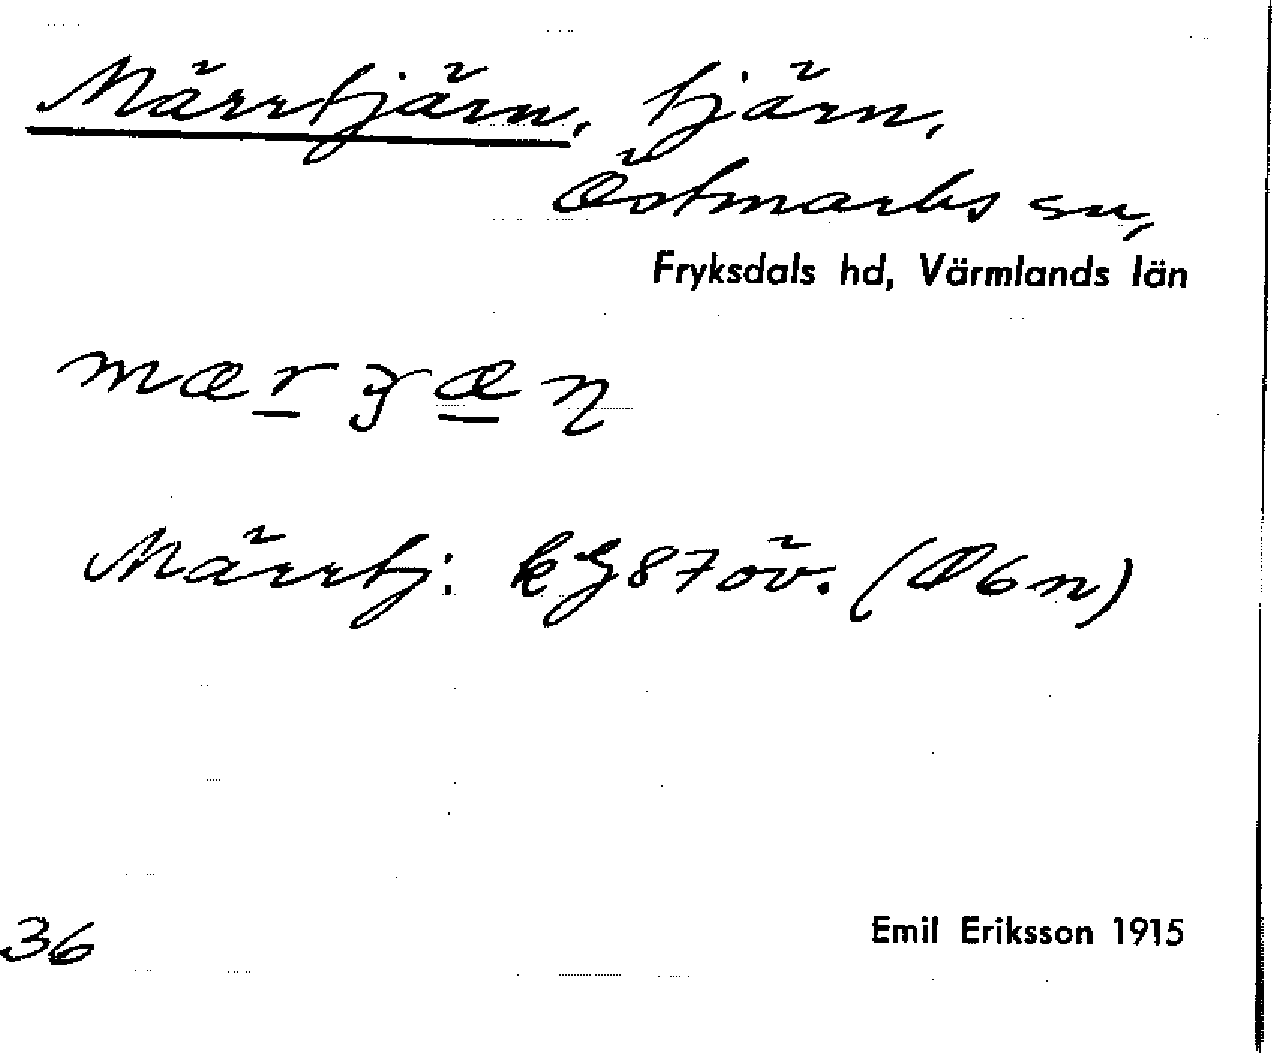 Märrtjärn, tjärn,
Östmarks sn,
Fryksdals hd, Värmlands län
Märrtj: kg 87 öv. (Ö6n)
36
Emil Eriksson 1915